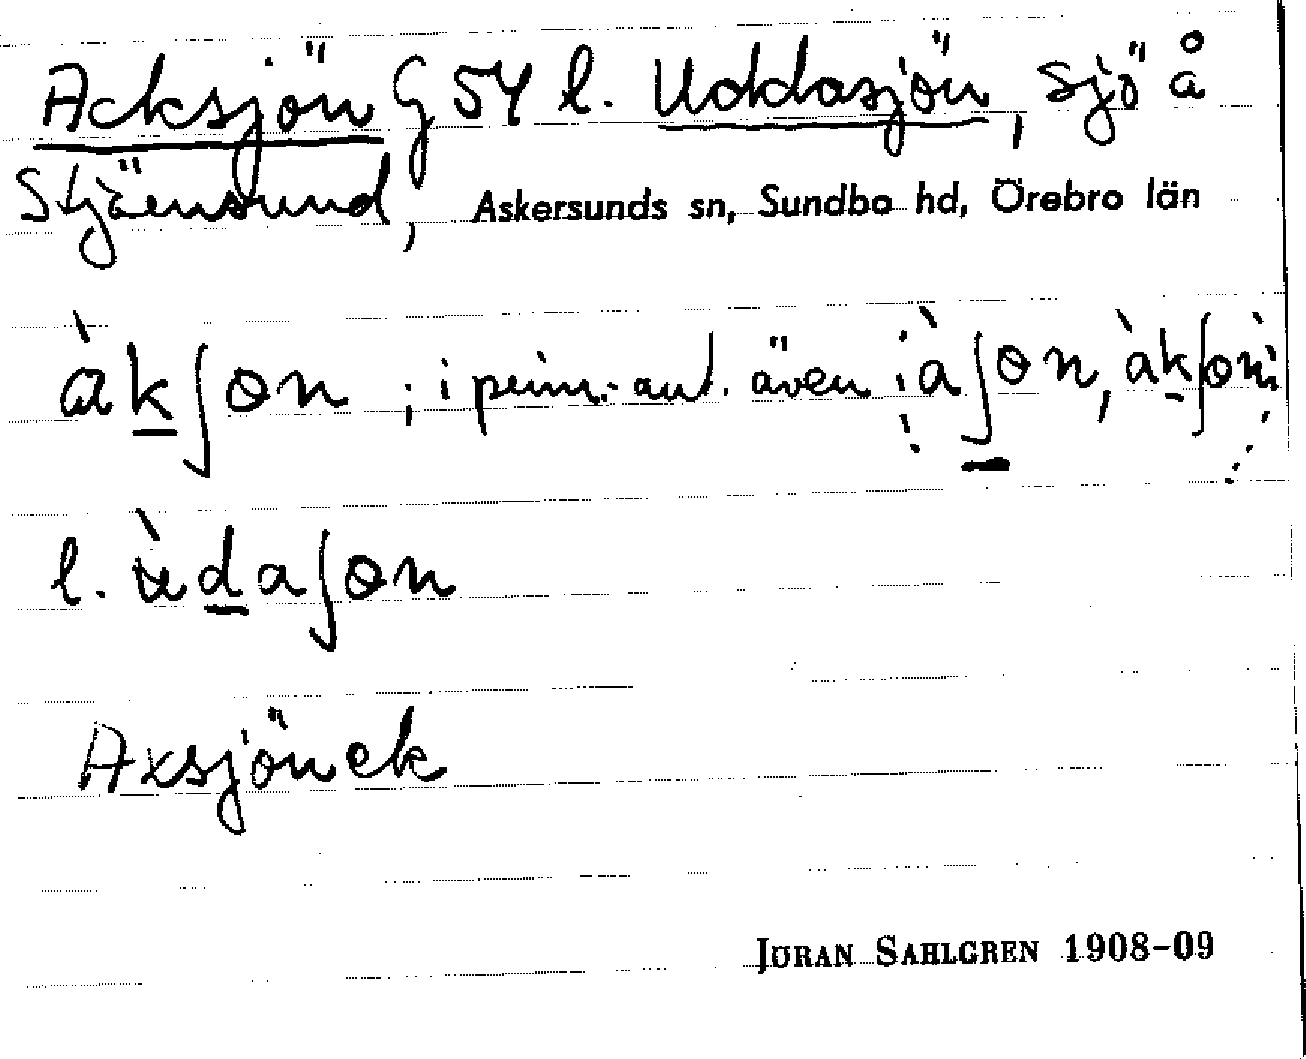 Acksjön G 54 l. Uddasjön, sjö å
Stjärnsund, Askersunds sn, Sundbo hd, Örebro län
àkʃɵn ; i prim.-uppt. även àʃɵn, àkʃɵn
l. ùdaʃɵn
Axsjön ek
JÖRAN SAHLGREN 1908-09